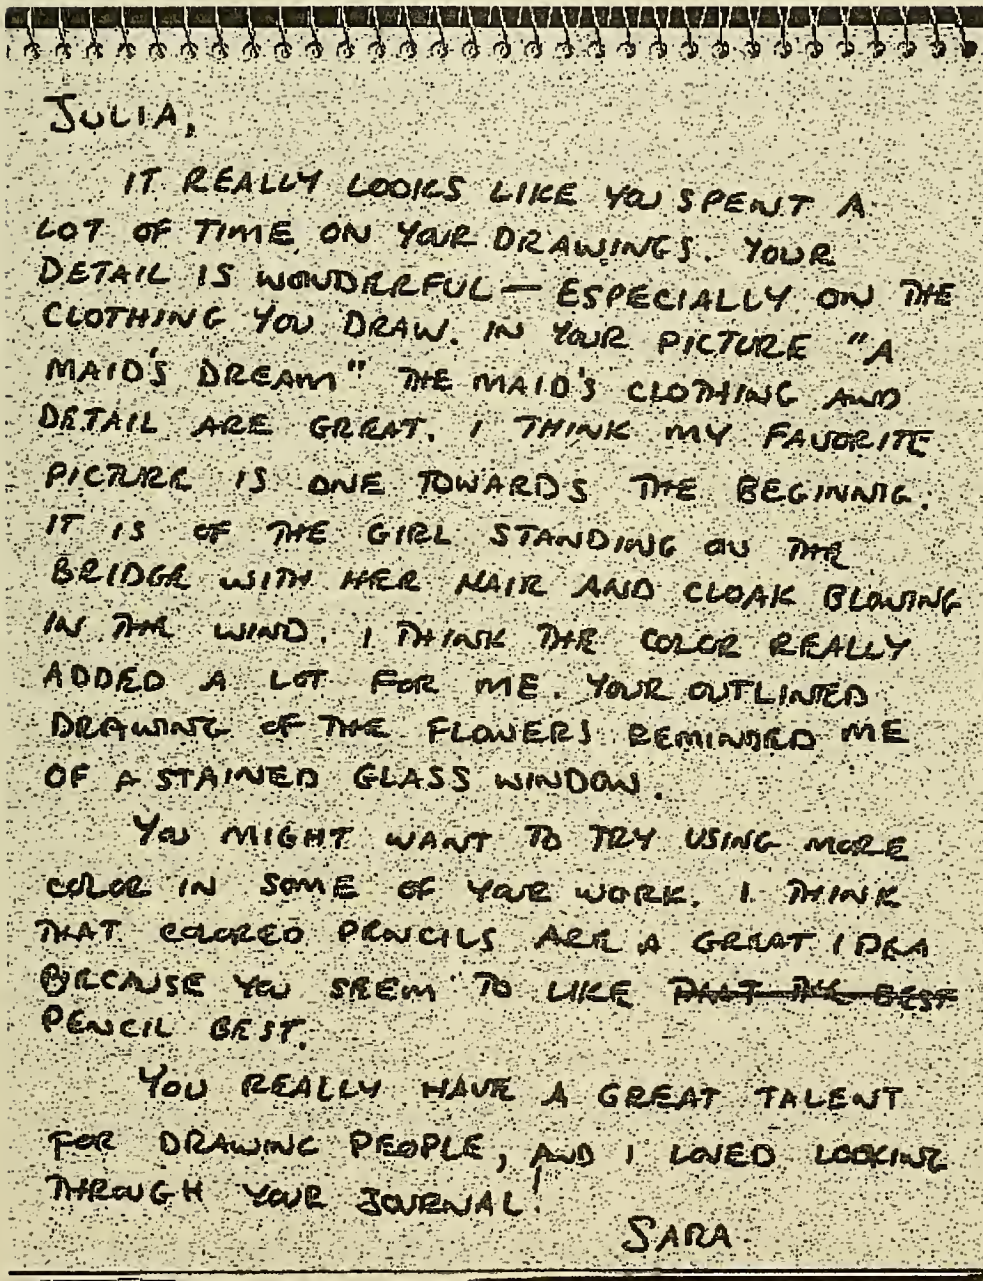 JULIA,
IT REALLY LOOKS LIKE YOU SPENT A
LOT OF TIME ON YOUR DRAWINGS. YOUR
DETAIL IS WONDERFUL — ESPECIALLY ON THE
CLOTHING YOU DRAW. IN YOUR PICTURE "A
MAID'S DREAM" THE MAID'S CLOTHING AND
DETAIL ARE GREAT. I THINK MY FAVORITE
PICTURE IS ONE TOWARDS THE BEGINNIG.
IT IS OF THE GIRL STANDING ON THE
BRIDGE WITH HER HAIR AND CLOAK BLOWING
IN THE WIND. I THINK THE COLOR REALLY
ADDED A LOT FOR ME. YOUR OUTLINED
DRAWING OF THE FLOWERS REMINDED ME
OF A STAINED GLASS WINDOW.
YOU MIGHT WANT TO TRY USING MORE
COLOR IN SOME OF YOUR WORK. I THINK
THAT COLORED PENCILS ARE A GREAT IDEA
BECAUSE YOU SEEM TO LIKE
PENCIL BEST.
YOU REALLY HAVE A GREAT TALENT
FOR DRAWING PEOPLE, AND I LOVED LOOKING
THROUGH YOUR JOURNAL!
SARA